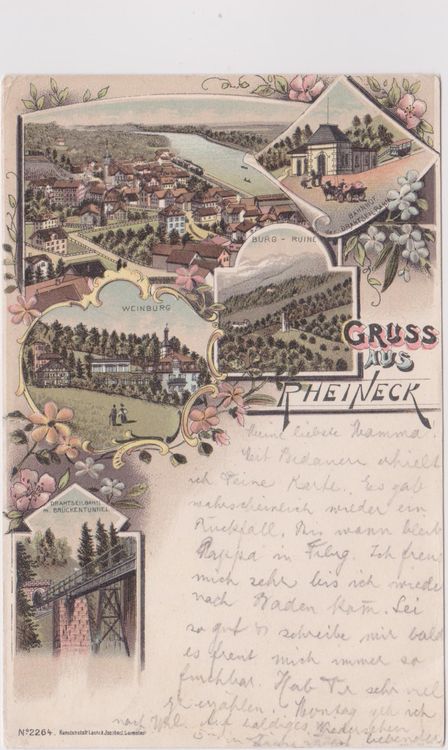 BAHNHOF
DRAHTSEILBAHN
BURG - RUINE
WEINBURG
GRUSS
AUS
RHEINECK
DRAHTSEILBAHN
M. BRÜCKENTUNNEL
Meine liebste Mamma
Mit Bedauern erhielt
ich Deine Karte. Es gab
wahrscheinlich wieder ein
Rückfall. Bis wann bleibt
Pappa in Ich freu
mich sehr bis ich wieder
nach Baden kom. Sei
so gut & schreibe mir bald
es freut mich immer so
furchbar. Hab Dir sehr viel
zu erzählen. Montag geh ich
nach Auf baldiges Wiedersehen
No 2264. Kunstanstalt